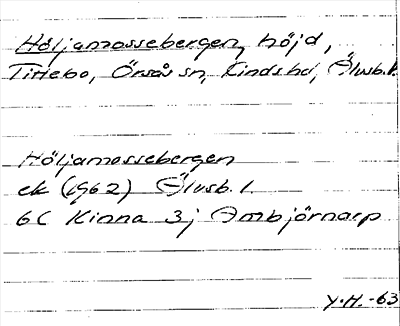 Höljamossebergen, höjd,
Tittebo, Örsås sn, Kinds hd, Älvsb. l.
Höljamossebergen
ek (1962) Älvsb. l.
6C Kinna 3j Ambjörnarp
Y.H. -63